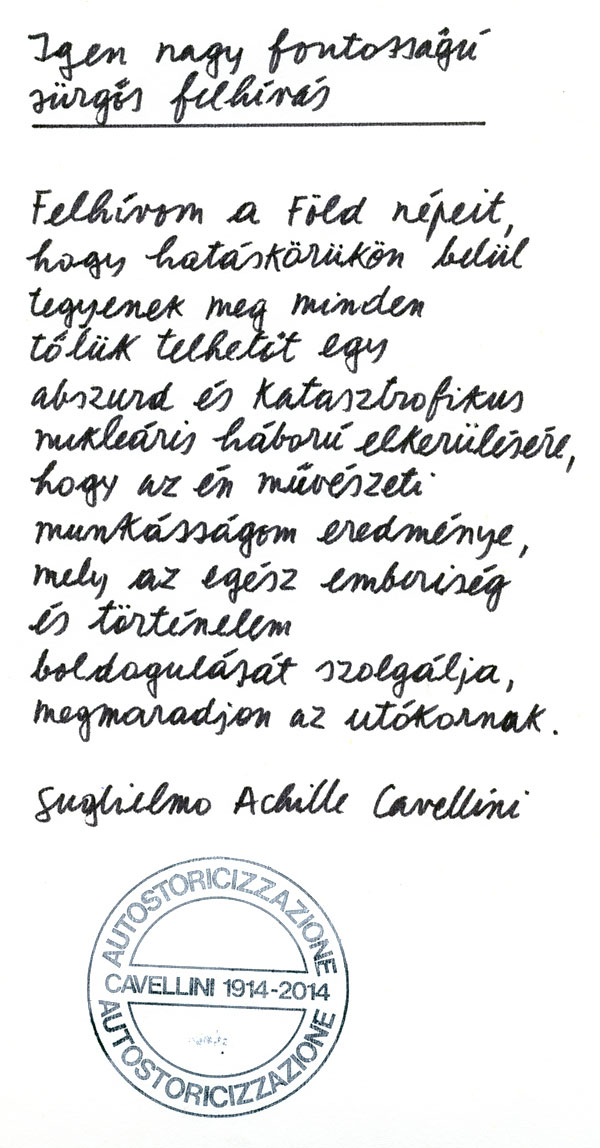 Igen nagy fontosságú
sürgős felhívás
Felhívom a Föld népeit,
hogy hatáskörükön belül
tegyenek meg minden
tőlük telhetőt egy
abszurd és katasztrofikus
nukleáris háború elkerülésére,
hogy az én művészeti
munkásságom eredménye,
mely az egész emberiség
és történelem
boldogulását szolgálja,
megmaradjon az utókornak.
Guglielmo Achille Cavellini
AUTOSTORICIZZAZIONE
CAVELLINI 1914-2014
AUTOSTORICIZZAZIONE